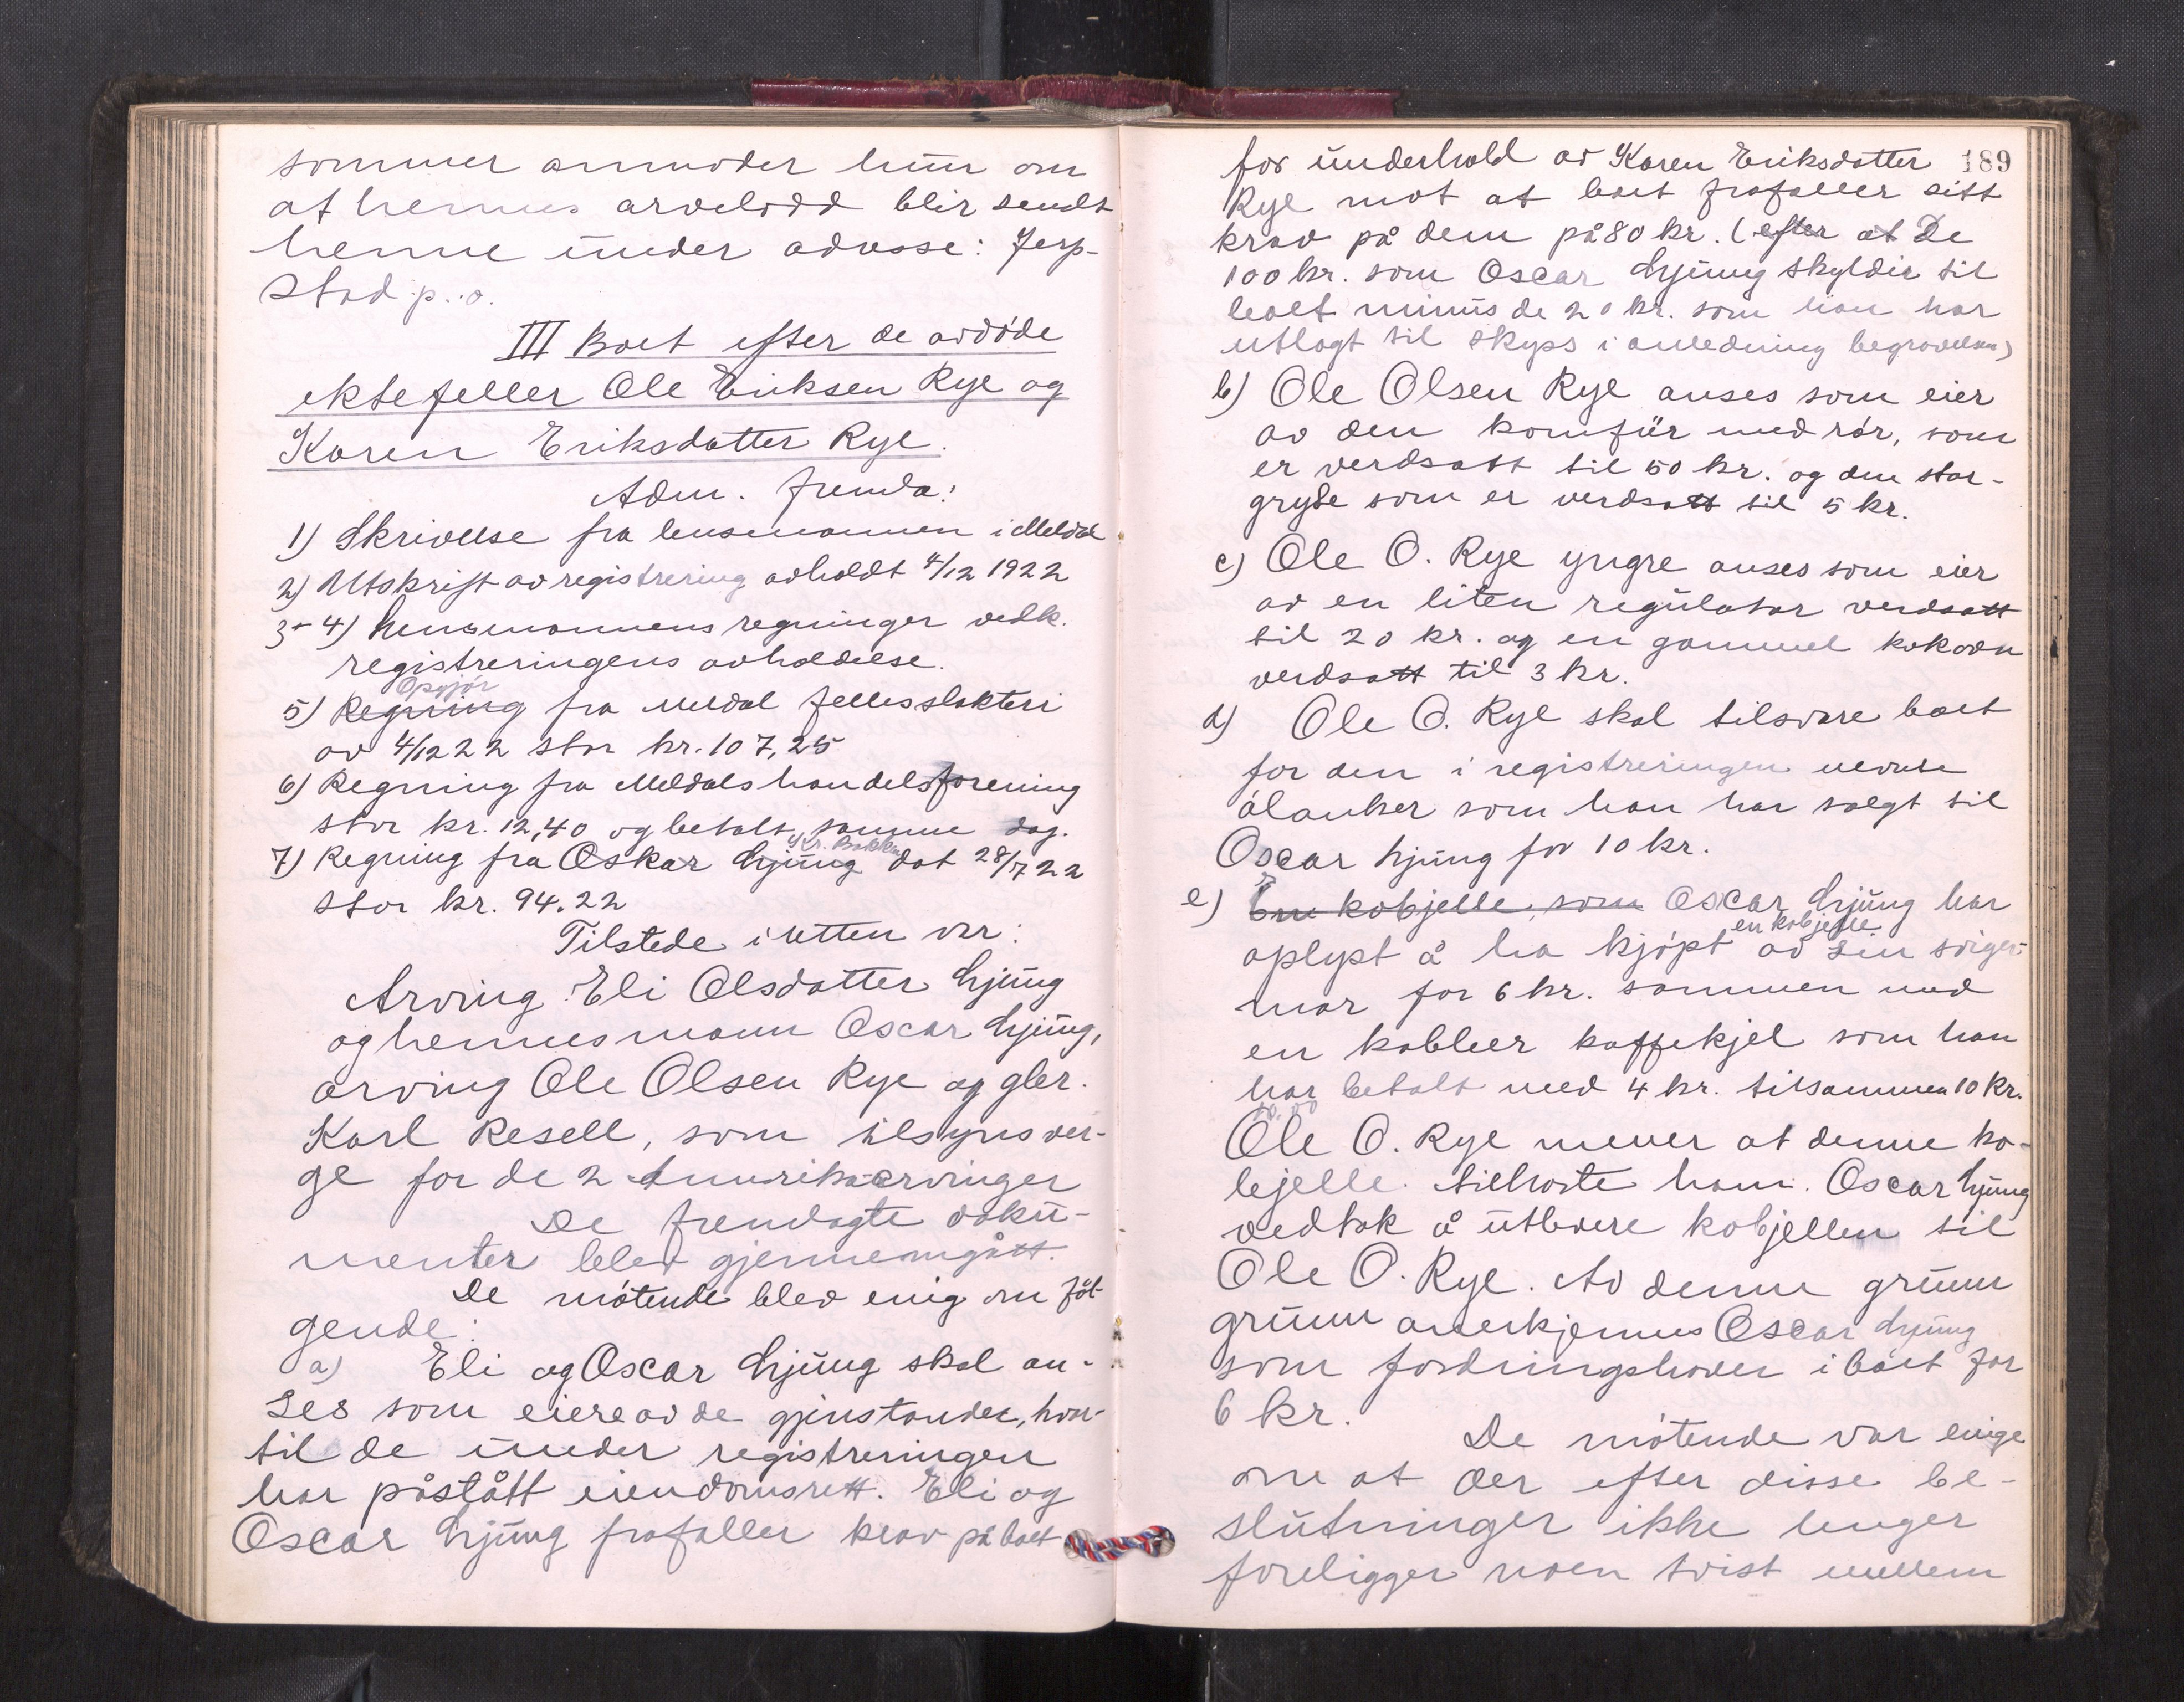 sommer anmoder hun om
at hennes arvelodd blir sendt
henne under adresse: Jerp-
stad p. o.
III Boet efter de avdøde
ektefeller Ole Eriksen Rye og
Karen Eriksdatter Rye.
Adm. fremla:
1) Skrivelse fra lensmannen i Meldal
2) Utskrift av registrering avholdt 4/12 1922
3 - 4) Lensmannens regninger vedk.
registreringens avholdelse.
Opgjør
5) Regning fra Meldal fellesslakteri
av 4/12 22 stor kr. 107,25
6) Regning fra Meldals handelsforening
stor kr. 12,40 og betalt samme dag.
Kr. Bakken
7) Regning fra Oskar Ljung dat 28/7 22
stor kr. 94.22
Tilstede i retten var:
Arving Eli Olsdatter Ljung
og hennes mann Oscar Ljung,
arving Ole Olsen Rye og gbr.
Karl Resell, som tilsynsver-
ge for de 2 Amerikaarvinger
De fremlagte doku-
menter blev gjennemgått.
De møtende blev enig om føl-
gende:
a) Eli og Oscar Ljung skal an-
ses som eiere av de gjenstander, hvor-
til de under registreringen
har påstått eiendomsrett. Eli og
Oscar Ljung frafaller krav på boet
189
for underhold av Karen Eriksdatter
Rye mot at boet frafaller sitt
krav på dem på 80 kr. (efter at De
100 kr. som Oscar Ljung skylder til
boet minus de 20 kr. som han har
utlagt til skyss i anledning begravelsen)
b) Ole Olsen Rye anses som eier
av den komfür med rør, som
er verdsatt til 50 kr. og den stor-
gryte som er verdsatt til 5 kr.
c) Ole O. Rye yngre anses som eier
av en liten regulator verdsatt
til 20 kr. og en gammel kokovn
verdsatt til 3 kr.
d) Ole O. Rye skal tilsvare boet
for den i registreringen nevnte
ølanker som han har solgt til
Oscar Ljung for 10 kr.
e) En kobjelle, som Oscar Ljung har
en kobjelle
oplyst å ha kjøpt av sin sviger-
mor for 6 kr. sammen med
en kobber kaffekjel som han
har betalt med 4 kr. tilsammen 10 kr.
Ole O. Rye mener at denne ko-
bjelle tilhørte ham. Oscar Ljung
vedtok å utlevere kobjellen til
Ole O. Rye. Av denne grunn
grunn anerkjennes Oscar Ljung
som fordringshaver i boet for
6 kr.
De møtende var enige
om at der efter disse be-
slutninger ikke lenger
foreligger noen tvist mellem